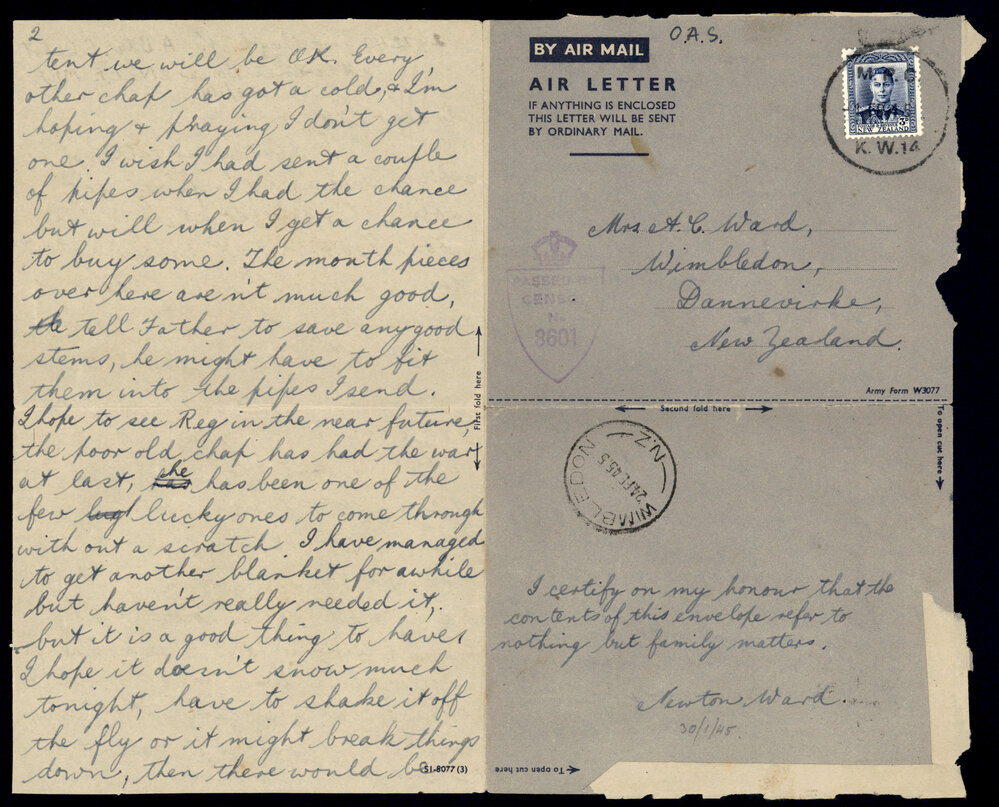 2
tent we will be OK. Every
other chap has got a cold, & I'm
hoping & praying I don't get
one. I wish I had sent a couple
of pipes when I had the chance
but will when I get a chance
to buy some. The mouth pieces
over here aren't much good,
tell Father to save any good
stems, he might have to fit
them into the pipes I send.
I hope to see Reg in the near future,
the poor old chap has had the war
at last, he has been one of the
few lucky ones to come through
with out a scratch. I have managed
to get another blanket for awhile
but haven't really needed it,
but it is a good thing to have.
I hope it doesn't snow much
tonight, have to shake it off
the fly or it might break things
down, then there would be
51-8077 (3)
First fold here
O.A.S.
BY AIR MAIL
AIR LETTER
IF ANYTHING IS ENCLOSED
THIS LETTER WILL BE SENT
BY ORDINARY MAIL.
NEW ZEALAND
3D
K.W.14
Mrs A. C. Ward,
Wimbledon,
Dannevirke,
New Zealand.
PASSED BY
CENSOR
No
3601
Army Form W3077
Second fold here
To open cut here
WIMBLEDON N.Z.
24 FE 45. 5
I certify on my honour that the
contents of this envelope refer to
nothing but family matters.
Newton Ward.
30/1/45.
To open cut here